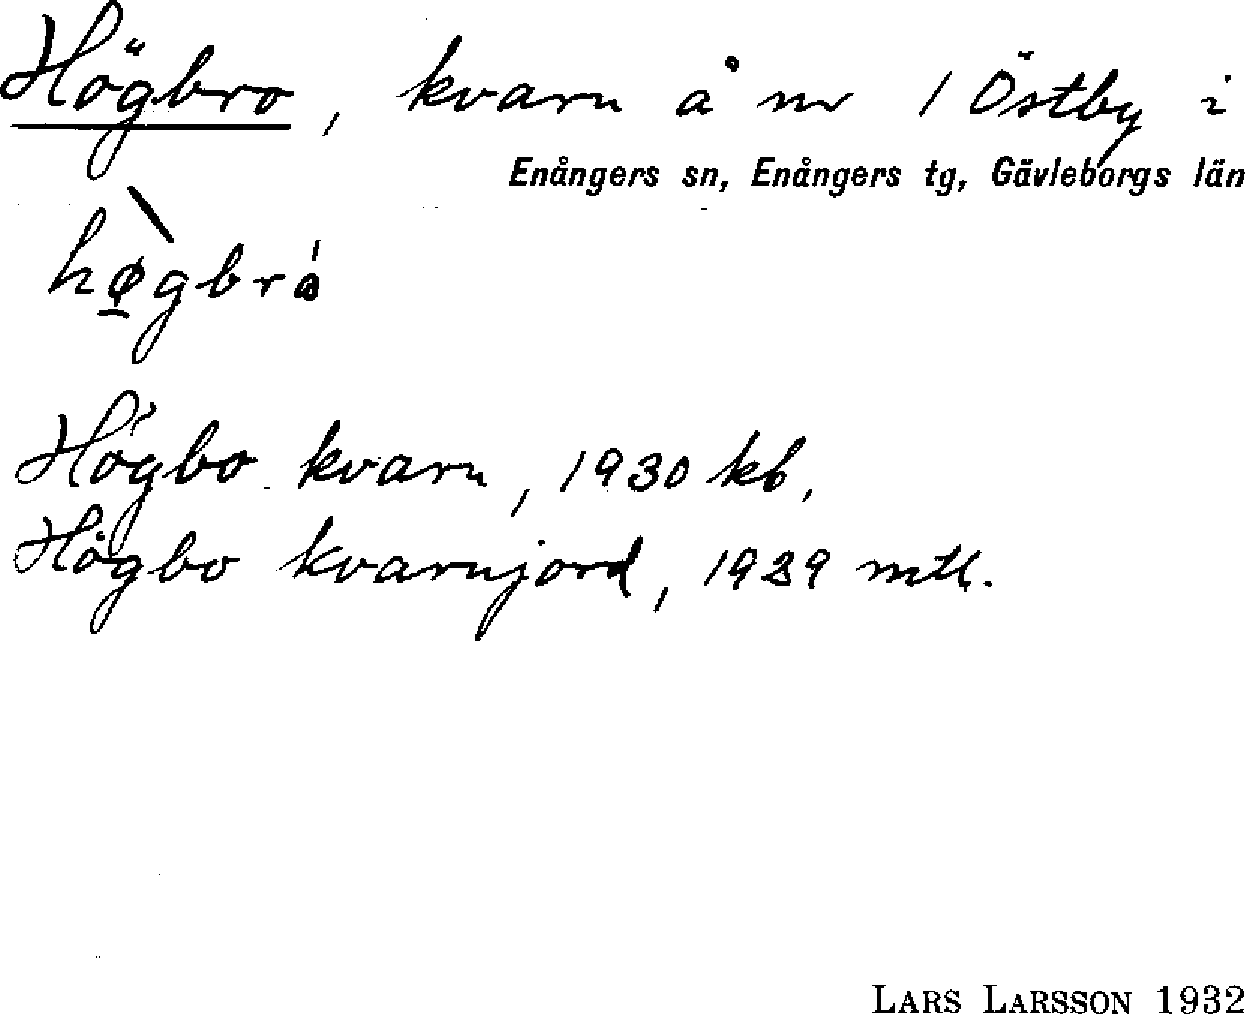 Högbro, kvarn å nr 1 Östby i
Enångers sn, Enångers tg, Gävleborgs län
hø̲̀gbró
Högbo kvarn, 1930 kb,
Högbo kvarnjord, 1929 mtl.
LARS LARSSON 1932